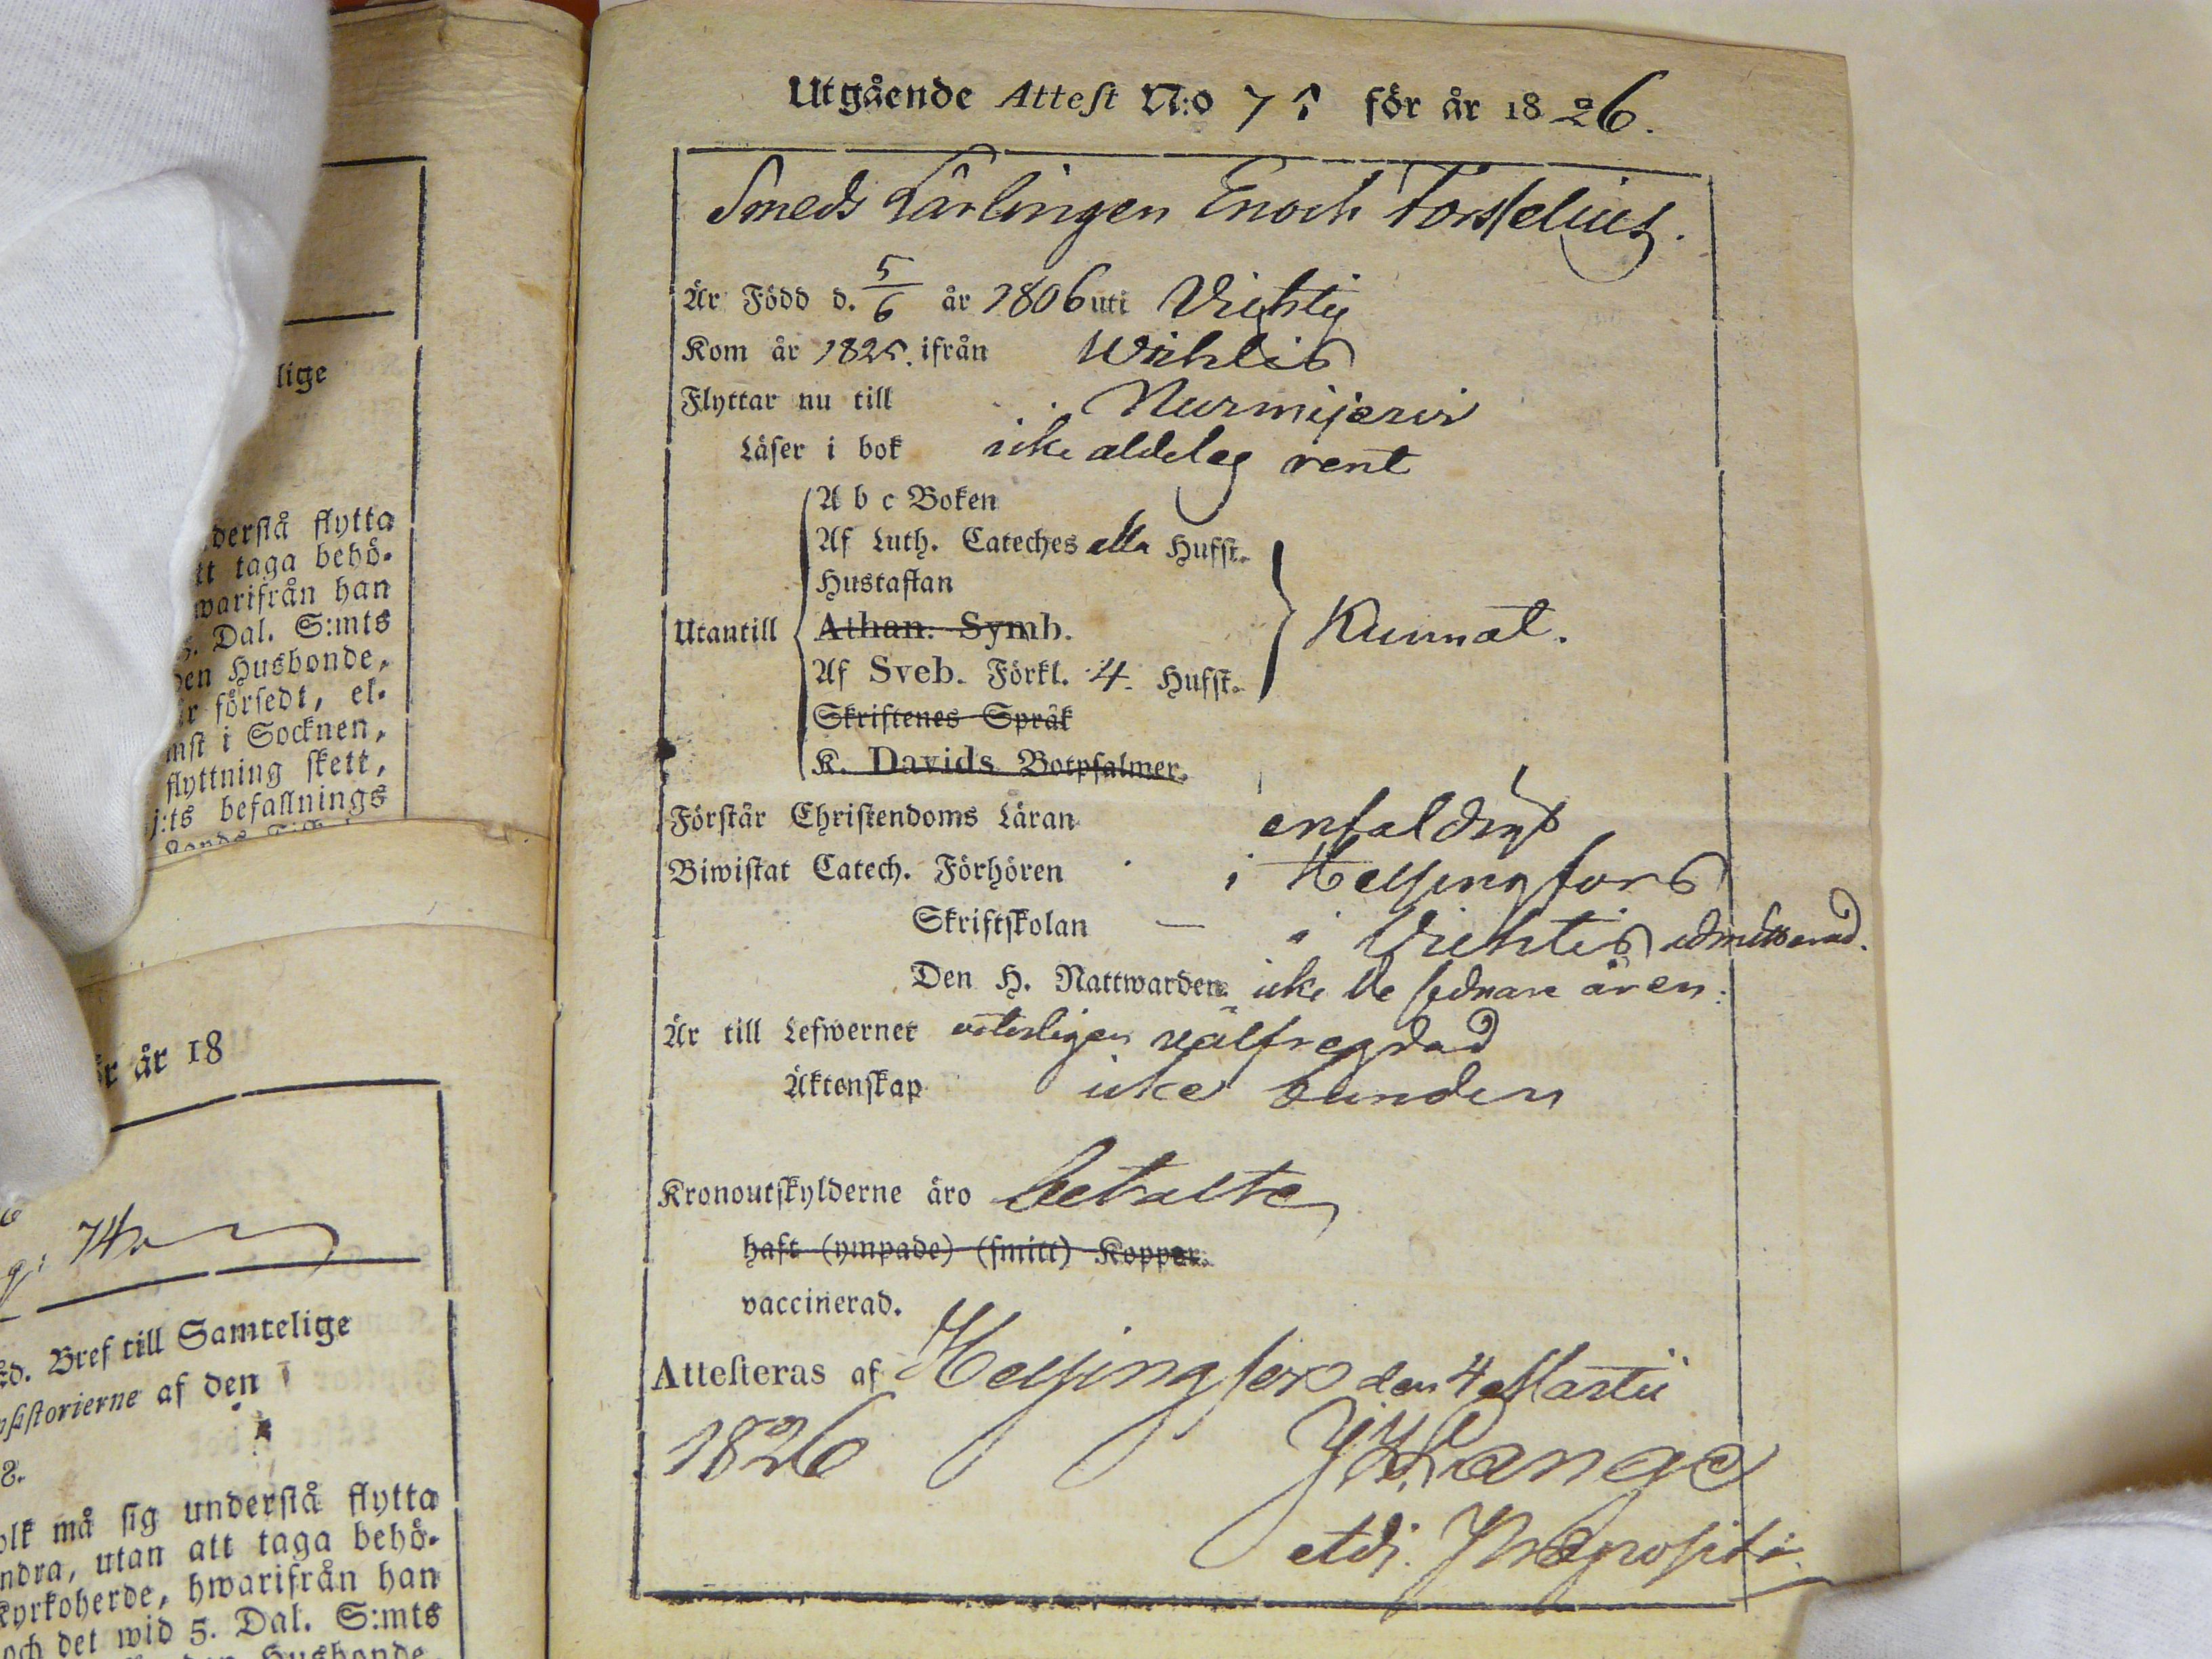 lige
derstå flytta
tt taga behö-
warifrån han
Dal. S:mts
den Husbonde,
är försedt, el-
mst i Socknen,
flyttning skett,
j:ts befallnings
ör år 18
Bref till Samtelige
storierne af den
8.
olk må sig understå flytta
ndra, utan att taga behö-
Kyrkoherde, hwarifrån han
och det wid 5. Dal. S:mts
Husbonde,
Utgående Attest N:o 75 för år 1826.
Smeds Lärlingen Enoch Forsselius.
Är Född d. 5/6 år 1806 uti Vichtis
Kom år 1825. ifrån Wichtis
Flyttar nu till Nurmijerwi
Läser i bok icke aldeles rent
A b c Boken
Af Luth. Cateches alla Hufst.
Hustaflan
Utantill Athan. Symb. Kunnat.
Af Sveb. Förkl. 4. Hufst.
Skriftenes Språk
K. Davids Botpsalmer.
Förstår Christendoms Läran enfaldigt
Biwistat Catech. Förhören i Helsingfors
Skriftskolan — i Vichtis admitterad.
Den H. Nattwarden icke de sednare åren.
Är till Lefwernet välfregdad
Äktenskap icke bunden
Kronoutskylderne äro betalte
haft (ympade) (smitt) Koppor.
vaccinerad.
Attesteras af Helsingfors den 4 Martii
1826 Lange
Adj. Præpositi.